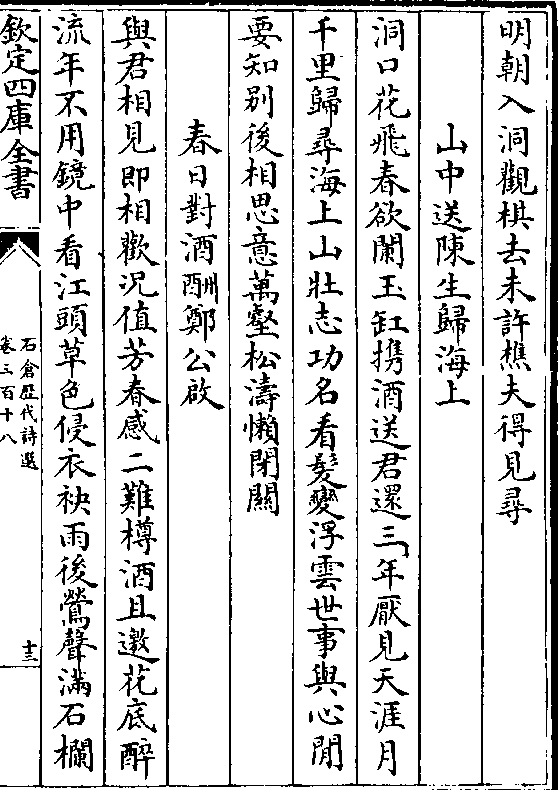 明朝入洞觀棋去未許樵夫得見尋
山中送陳生歸海上
洞口花飛春欲闌玉缸携酒送君還三年厭見天涯月
千里歸尋海上山壯志功名看髮變浮雲世事與心閒
要知别後相思意萬壑松濤懶閉關
春日對酒酬鄭公啟
與君相見即相歡况值芳春感二難樽酒且邀花底醉
流年不用鏡中看江頭草色侵衣袂雨後鶯聲滿石欄
欽定四庫全書
石倉歴代詩選
卷三百十八
十三